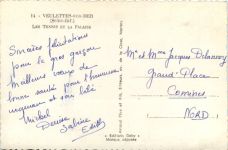 14 - VEULETTES-SUR-MER
(SEINE-INF.)
LES TENNIS ET LA FALAISE
Sincères félicitations
pour le gros garçon
Meilleurs vœux de
bonne santé pour l'heureuse
maman et son bébé
Michel
Denise
Sabine
Edith
Mr et Mme Jacques Delannoy
Grand-Place
Comines
NORD
« Edition Gaby »
Marque déposée